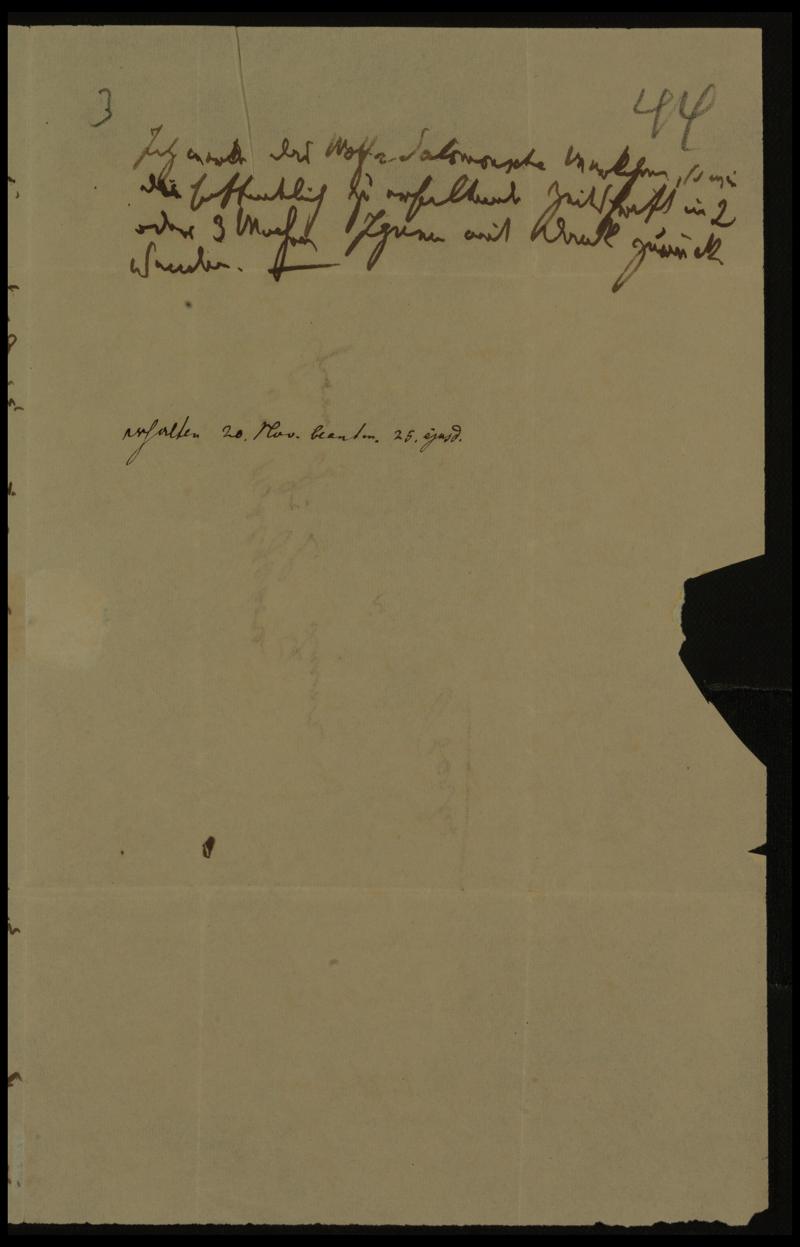 3
44
Ich werde das Wolff-Salomonsche Werkchen, so wie
die hoffentlich zu erhaltende Zeitschrift in 2
oder 3 Wochen Ihnen mit Dank zurück
senden.
erhalten 20. Nov. beantw. 25. ejusd.